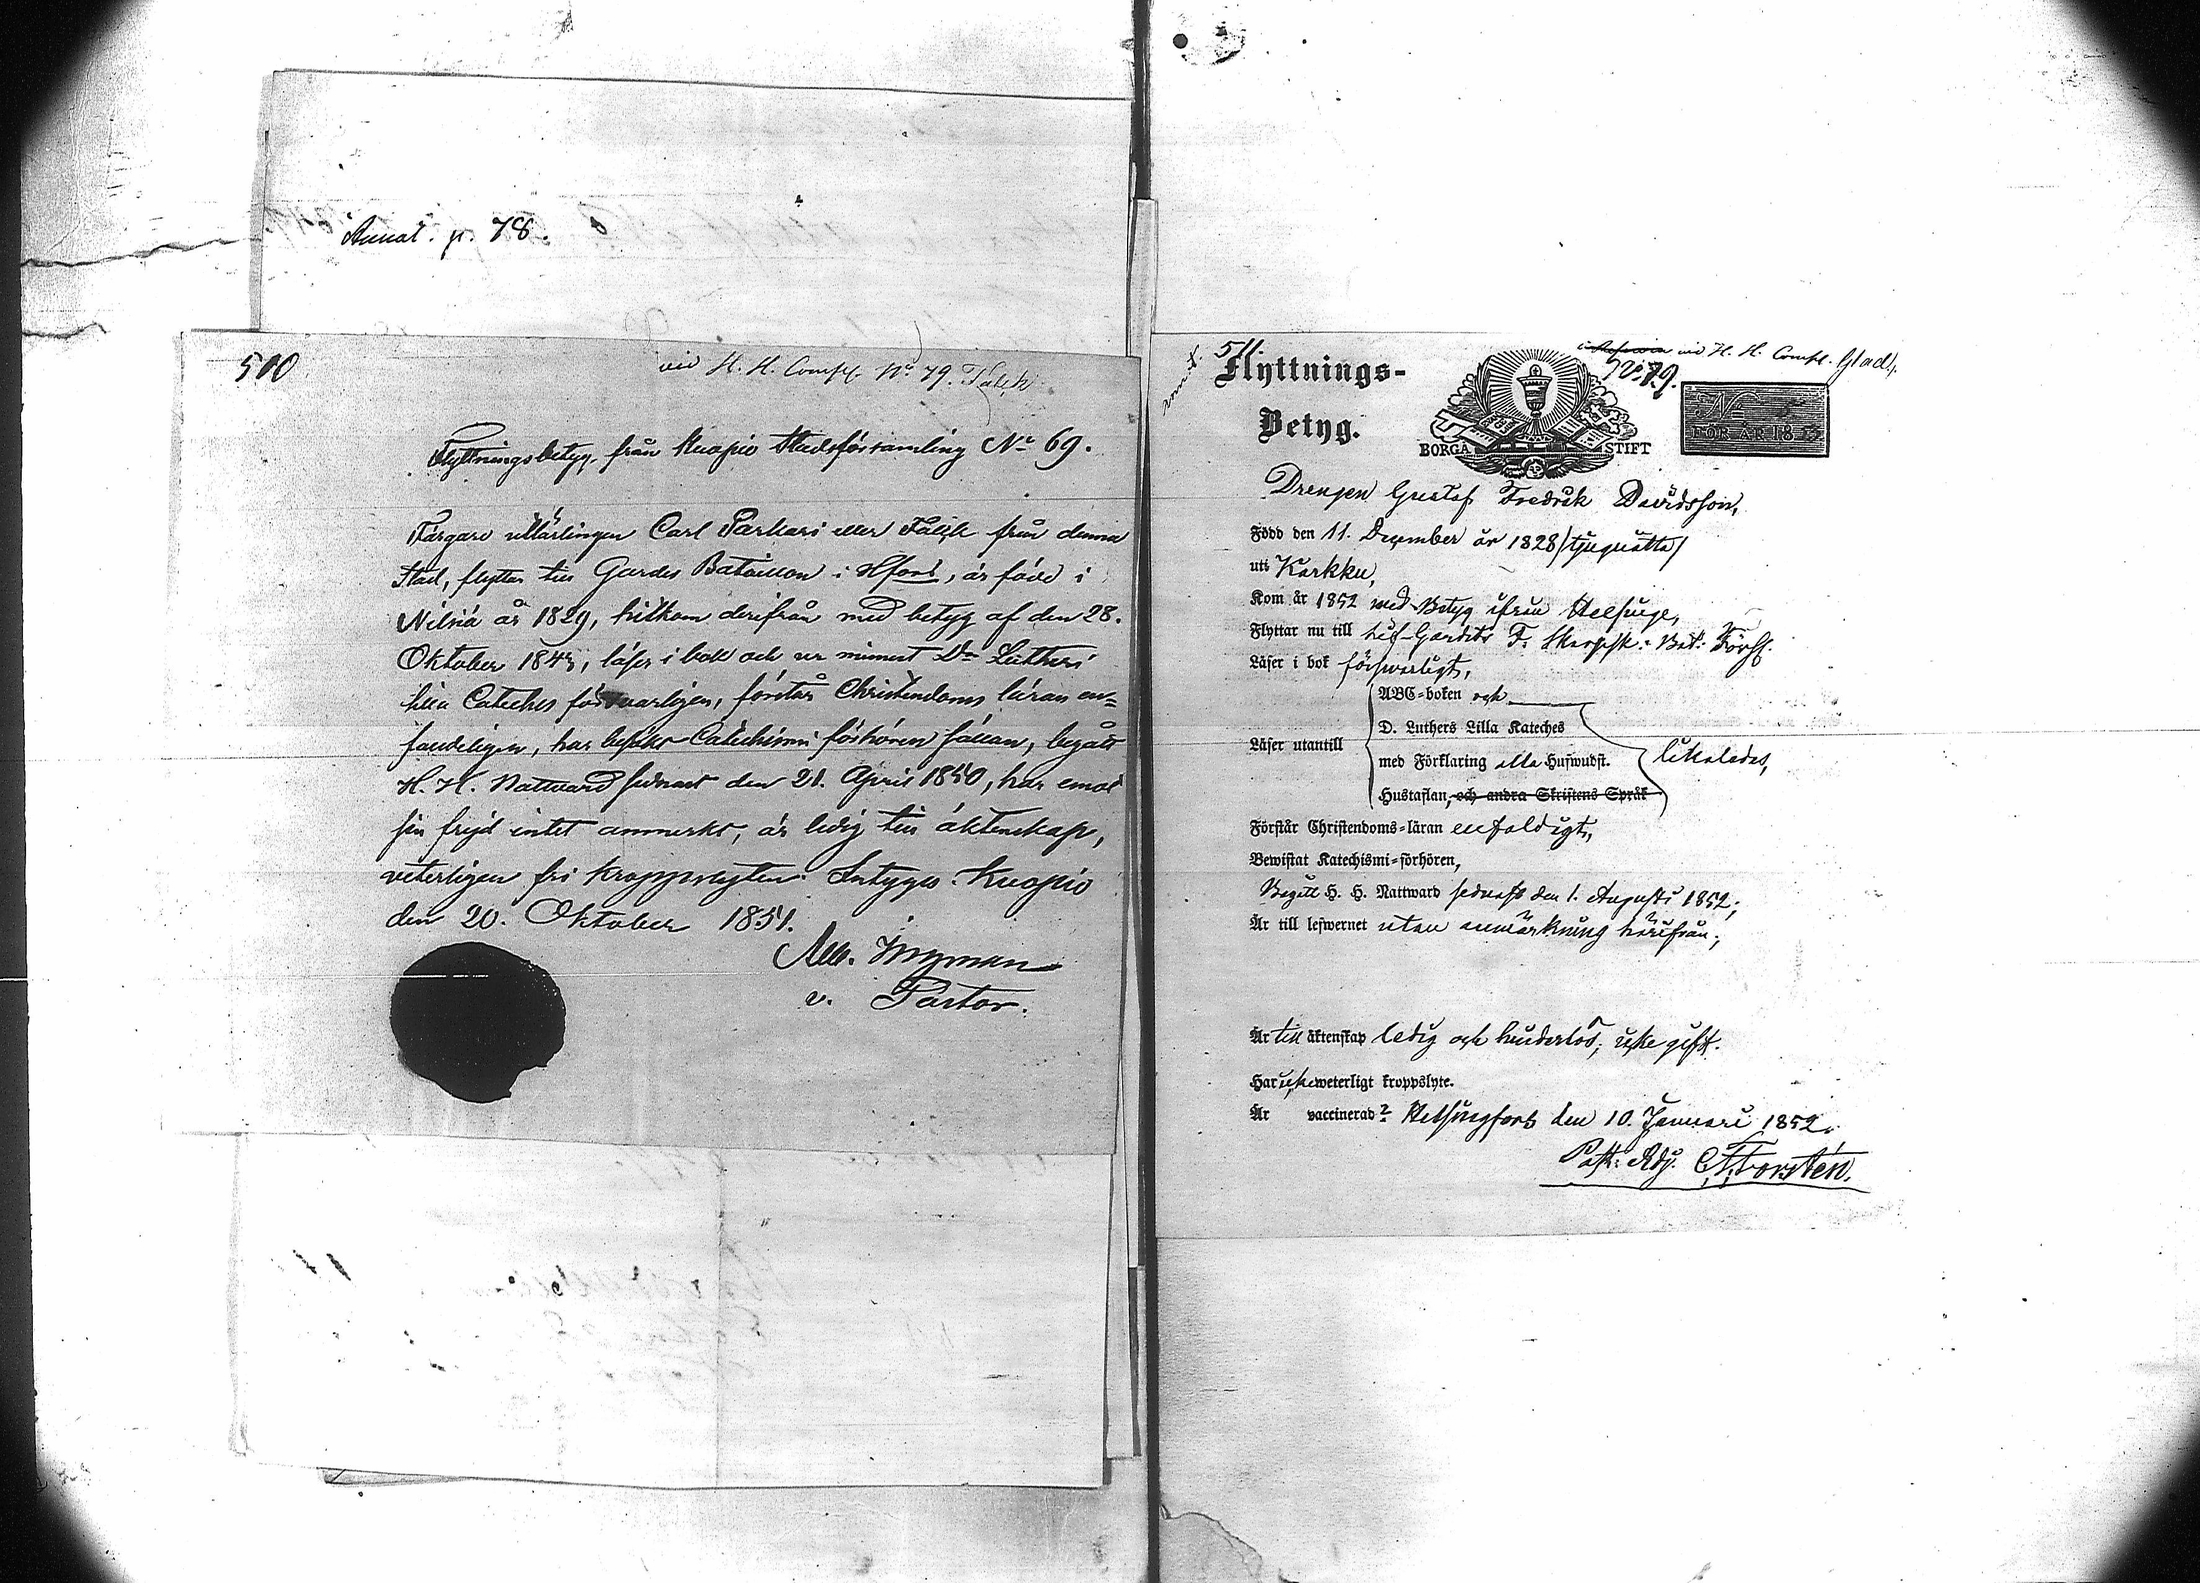 Annot. p. 78.
510
vid H. H. Comp. No 79. Falck
Flyttningsbetyg från Kuopio Stadsförsamling No 69.
Färgare utlärlingen Carl Parkari eller Falck från denna
Stad, flyttar till Gardes Bataillon i Hfors, är född i
Nilsiä år 1829, hitkom derifrån med betyg af den 28.
Oktober 1843, läser i bok och ur minnet Dr Lutheri
lilla Cateches försvarligen, förstår Christendoms läran en-
faldeligen, har besökt Catechismi förhören sällan, begått
H. H. Nattvard sednast den 21. April 1850, har emot
sin frejd intet anmerkt, är ledig till äktenskap,
veterligen fri kroppslyten. Intygas. Kuopio
den 20. Oktober 1851.
Nyman
v. Pastor.
511.
vid H. H. Comp. Glad,
No 79.
Flyttnings-
Betyg.
BORGÅ STIFT
No 5
FÖR ÅR 1853
Drengen Gustaf Fredrik Davidsson,
Född den 11. December år 1828 /tjuguåtta/
uti Karkku,
Kom år 1852 med Betyg ifrån Helsinge,
Flyttar nu till Lif-Gardets F. Skarpsk: Bat: Förs:
Läser i bok försvarligt,
ABC-boken och
D. Luthers Lilla Kateches
Läser utantill med Förklaring alla Hufwudst. likaledes,
Hustaflan, och andra Skriftens Språk
Förstår Christendoms-läran enfaldigt,
Bewistat Katechismi-förhören,
Begått H. H. Nattward sednast den 1. Augusti 1852;
Är till lefwernet utan anmärkning härifrån;
Är till äktenskap ledig och hinderlös, icke gift.
Har icke weterligt kroppslyte.
Är vaccinerad? Helsingfors den 10. Januari 1852.
Past: Adj. Forstén.